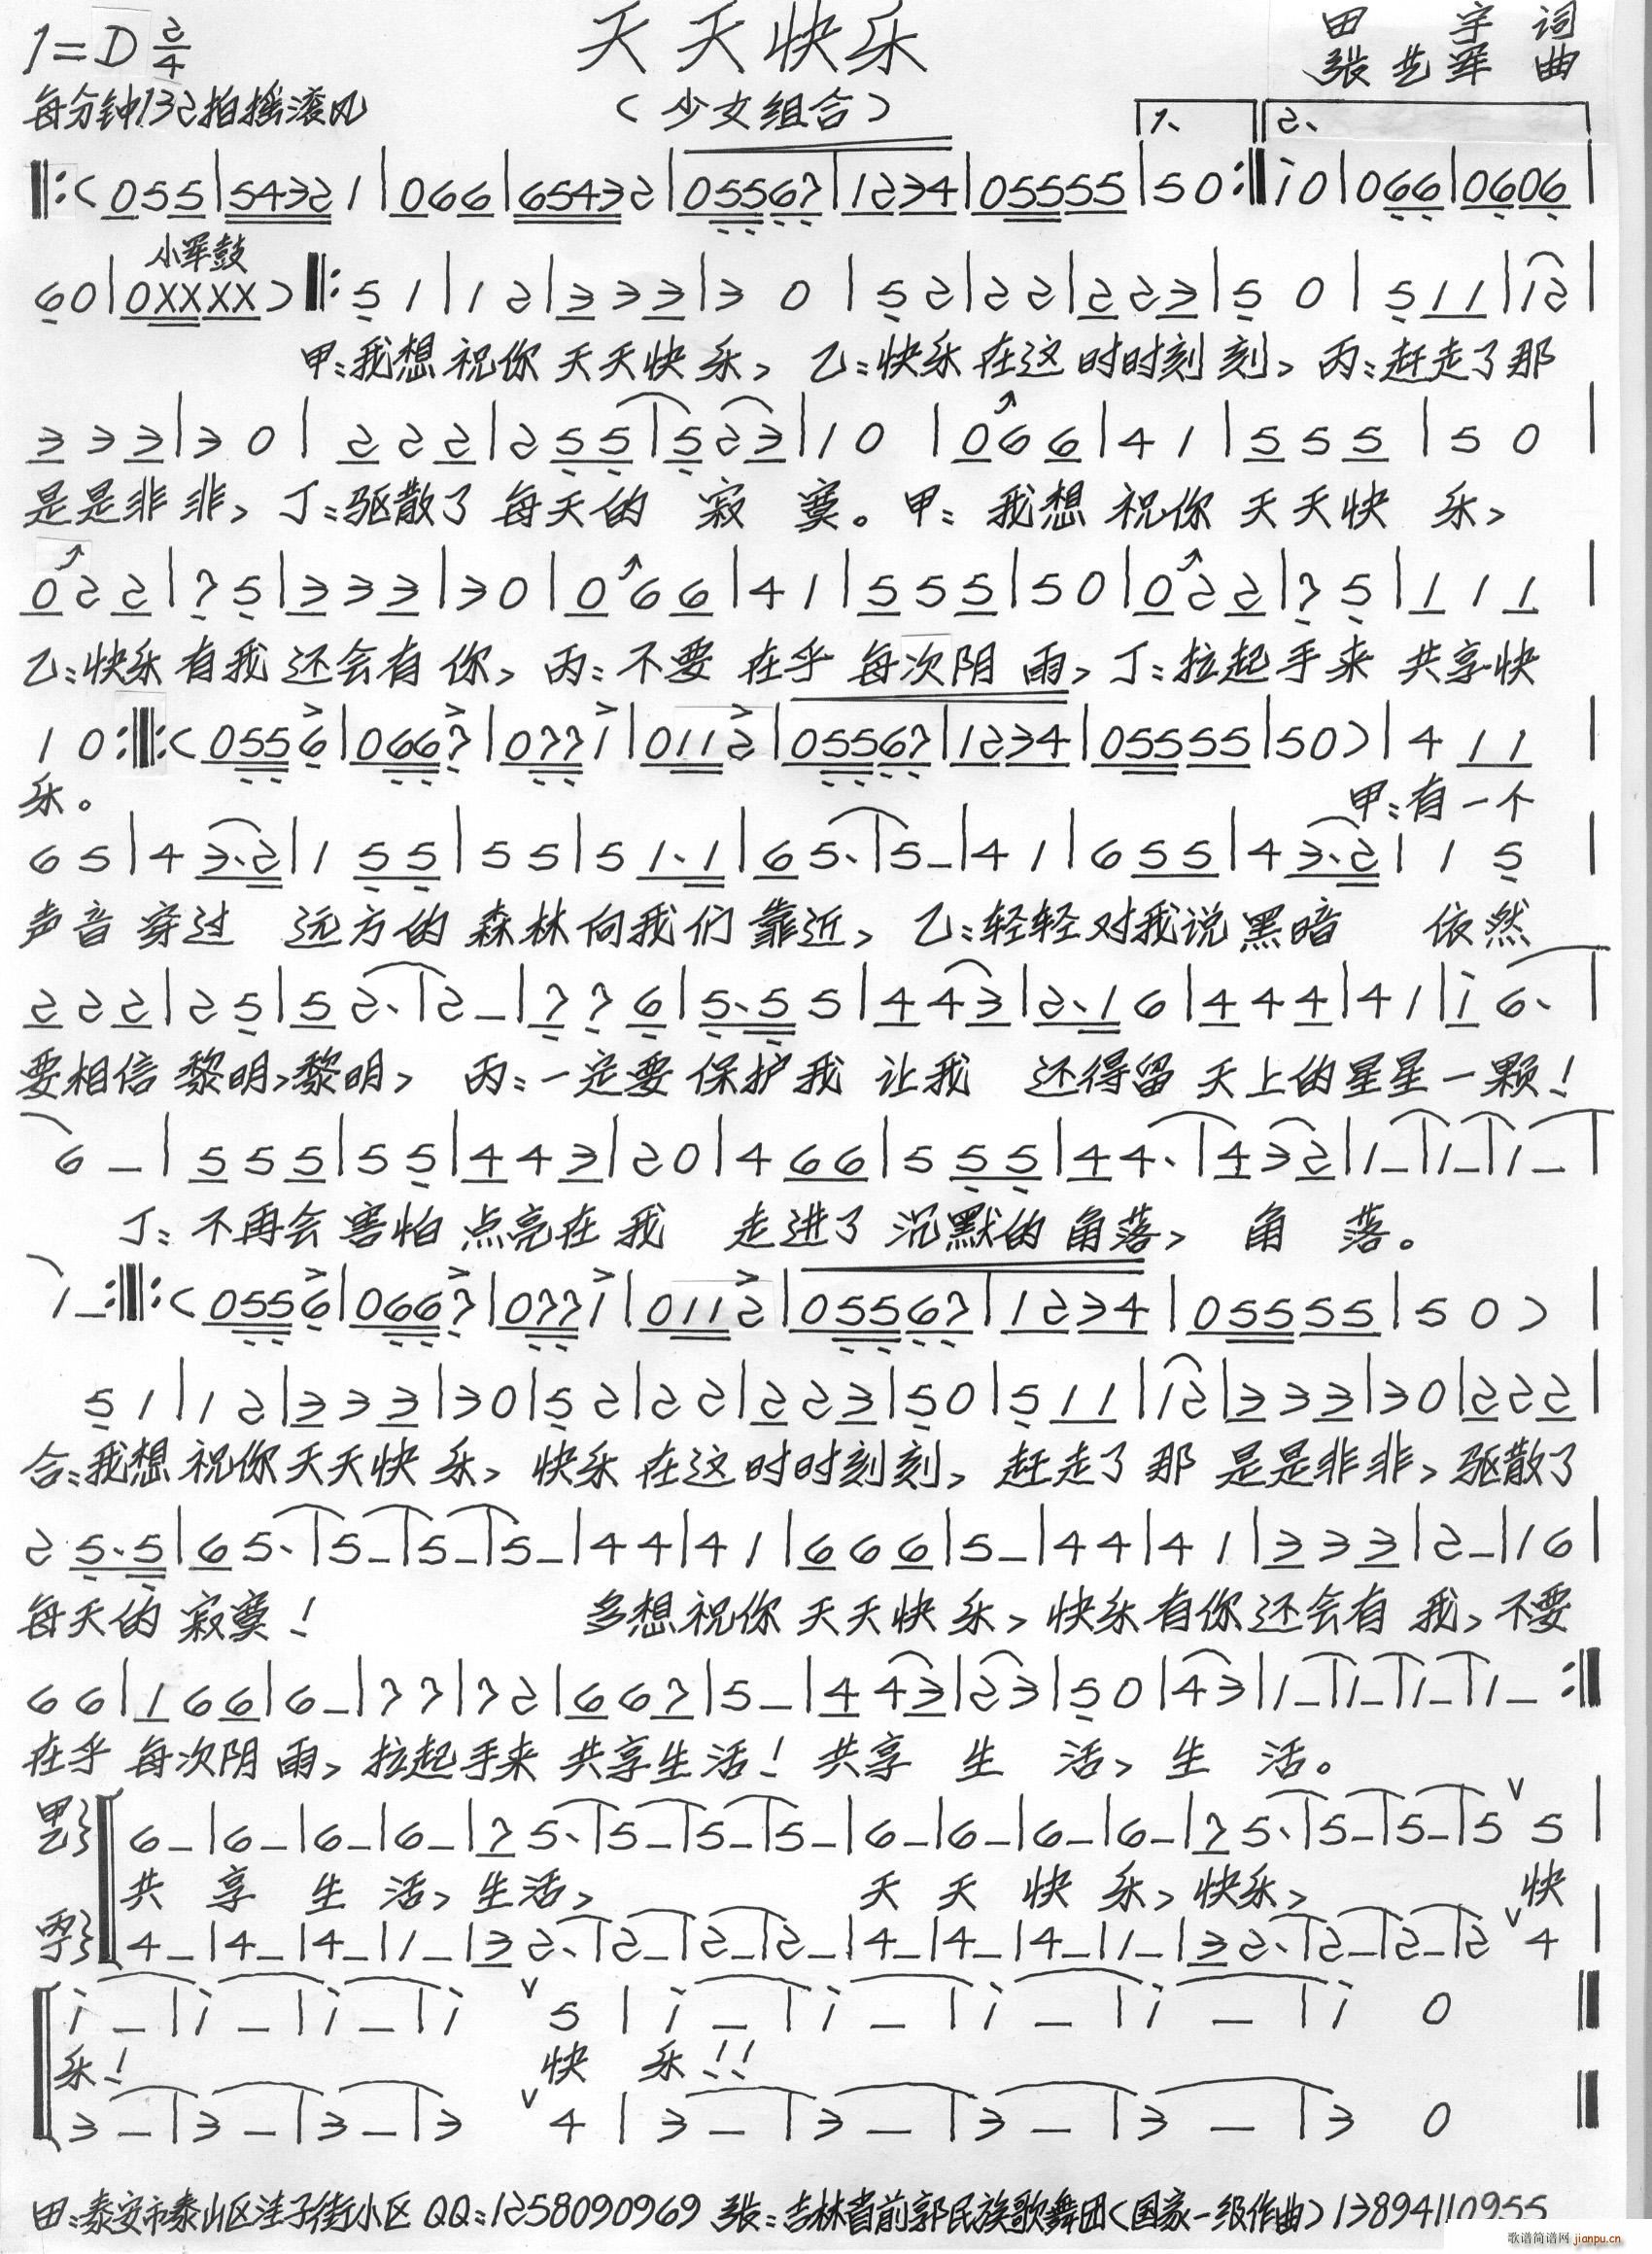 1=D 2/4
天天快乐
田宇 词
张艺军 曲
每分钟132拍摇滚风
（少女组合）
1、 2、
‖:( 055|54321|066|65432|05567|1234|05555|50:‖i0|066|0606|
小军鼓
60|0XXXX)‖:51|12|333|30|52|22|223|50|511|12|
甲:我想祝你天天快乐, 乙:快乐在这时时刻刻, 丙:赶走了那
333|30|222|255|523|10|066|41|555|50|
是是非非, 丁:驱散了每天的寂寞。甲:我想祝你天天快乐,
022|75|333|30|066|41|555|50|022|75|111|
乙:快乐有我还会有你, 丙:不要在乎每次阴雨, 丁:拉起手来共享快
10:‖:(0556|0667|0771|0112|05567|1234|05555|50)|411|
乐。 甲:有一个
65|43.2|155|55|51.1|65.|5-|41|655|43.2|15|
声音穿过 远方的森林向我们靠近, 乙:轻轻对我说黑暗 依然
222|25|52.|2-|776|5.55|443|2.16|444|41|i6.|
要相信黎明,黎明, 丙:一定要保护我让我 还得留天上的星星一颗!
6-|555|55|443|20|466|555|44.|432|1-|1-|1-|
丁:不再会害怕点亮在我 走进了沉默的角落, 角落。
1-:‖:(0556|0667|0771|0112|05567|1234|05555|50)|
51|12|333|30|52|22|223|50|511|12|333|30|222|
合:我想祝你天天快乐, 快乐在这时时刻刻, 赶走了那是是非非, 驱散了
25.5|65.|5-|5-|5-|44|41|666|5-|44|41|333|2-|16|
每天的寂寞! 多想祝你天天快乐, 快乐有你还会有我, 不要
66|166|6-|77|72|667|5-|443|23|50|43|1-|1-|1-|1-:‖
在乎每次阴雨, 拉起手来共享生活! 共享生活, 生活。
甲乙} 6-|6-|6-|6-|75.|5-|5-|5-|6-|6-|6-|6-|75.|5-|5-|5ⱽ5|
共享生活, 生活, 天天快乐, 快乐, 快
丙丁} 4-|4-|4-|1-|32.|2-|2-|2-|4-|4-|4-|1-|32.|2-|2-|2ⱽ4|
i-|i-|i-|iⱽ5|i-|i-|i-|i-|i0‖
乐! 快乐!!
3-|3-|3-|3ⱽ4|3-|3-|3-|3-|30‖
田:泰安市泰山区洼子街小区 QQ:1258090969 张:吉林省前郭民族歌舞团(国家一级作曲)13894110955
歌谱简谱网 jianpu.cn